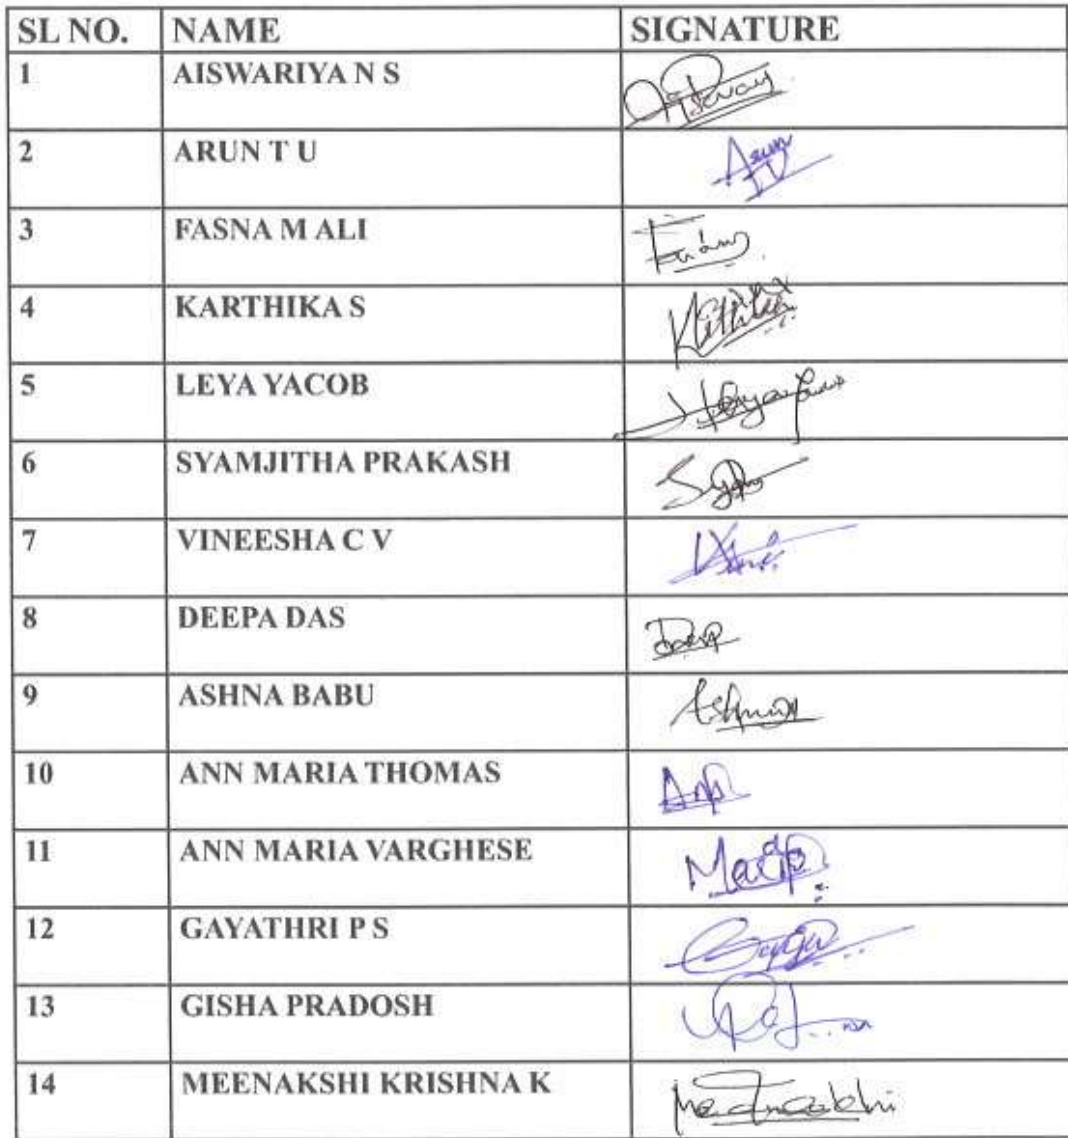 SL NO. NAME SIGNATURE
1 AISWARIYA N S
2 ARUN T U Arun
3 FASNA M ALI
4 KARTHIKA S
5 LEYA YACOB
6 SYAMJITHA PRAKASH
7 VINEESHA C V
8 DEEPA DAS
9 ASHNA BABU
10 ANN MARIA THOMAS
11 ANN MARIA VARGHESE
12 GAYATHRI P S
13 GISHA PRADOSH
14 MEENAKSHI KRISHNA K